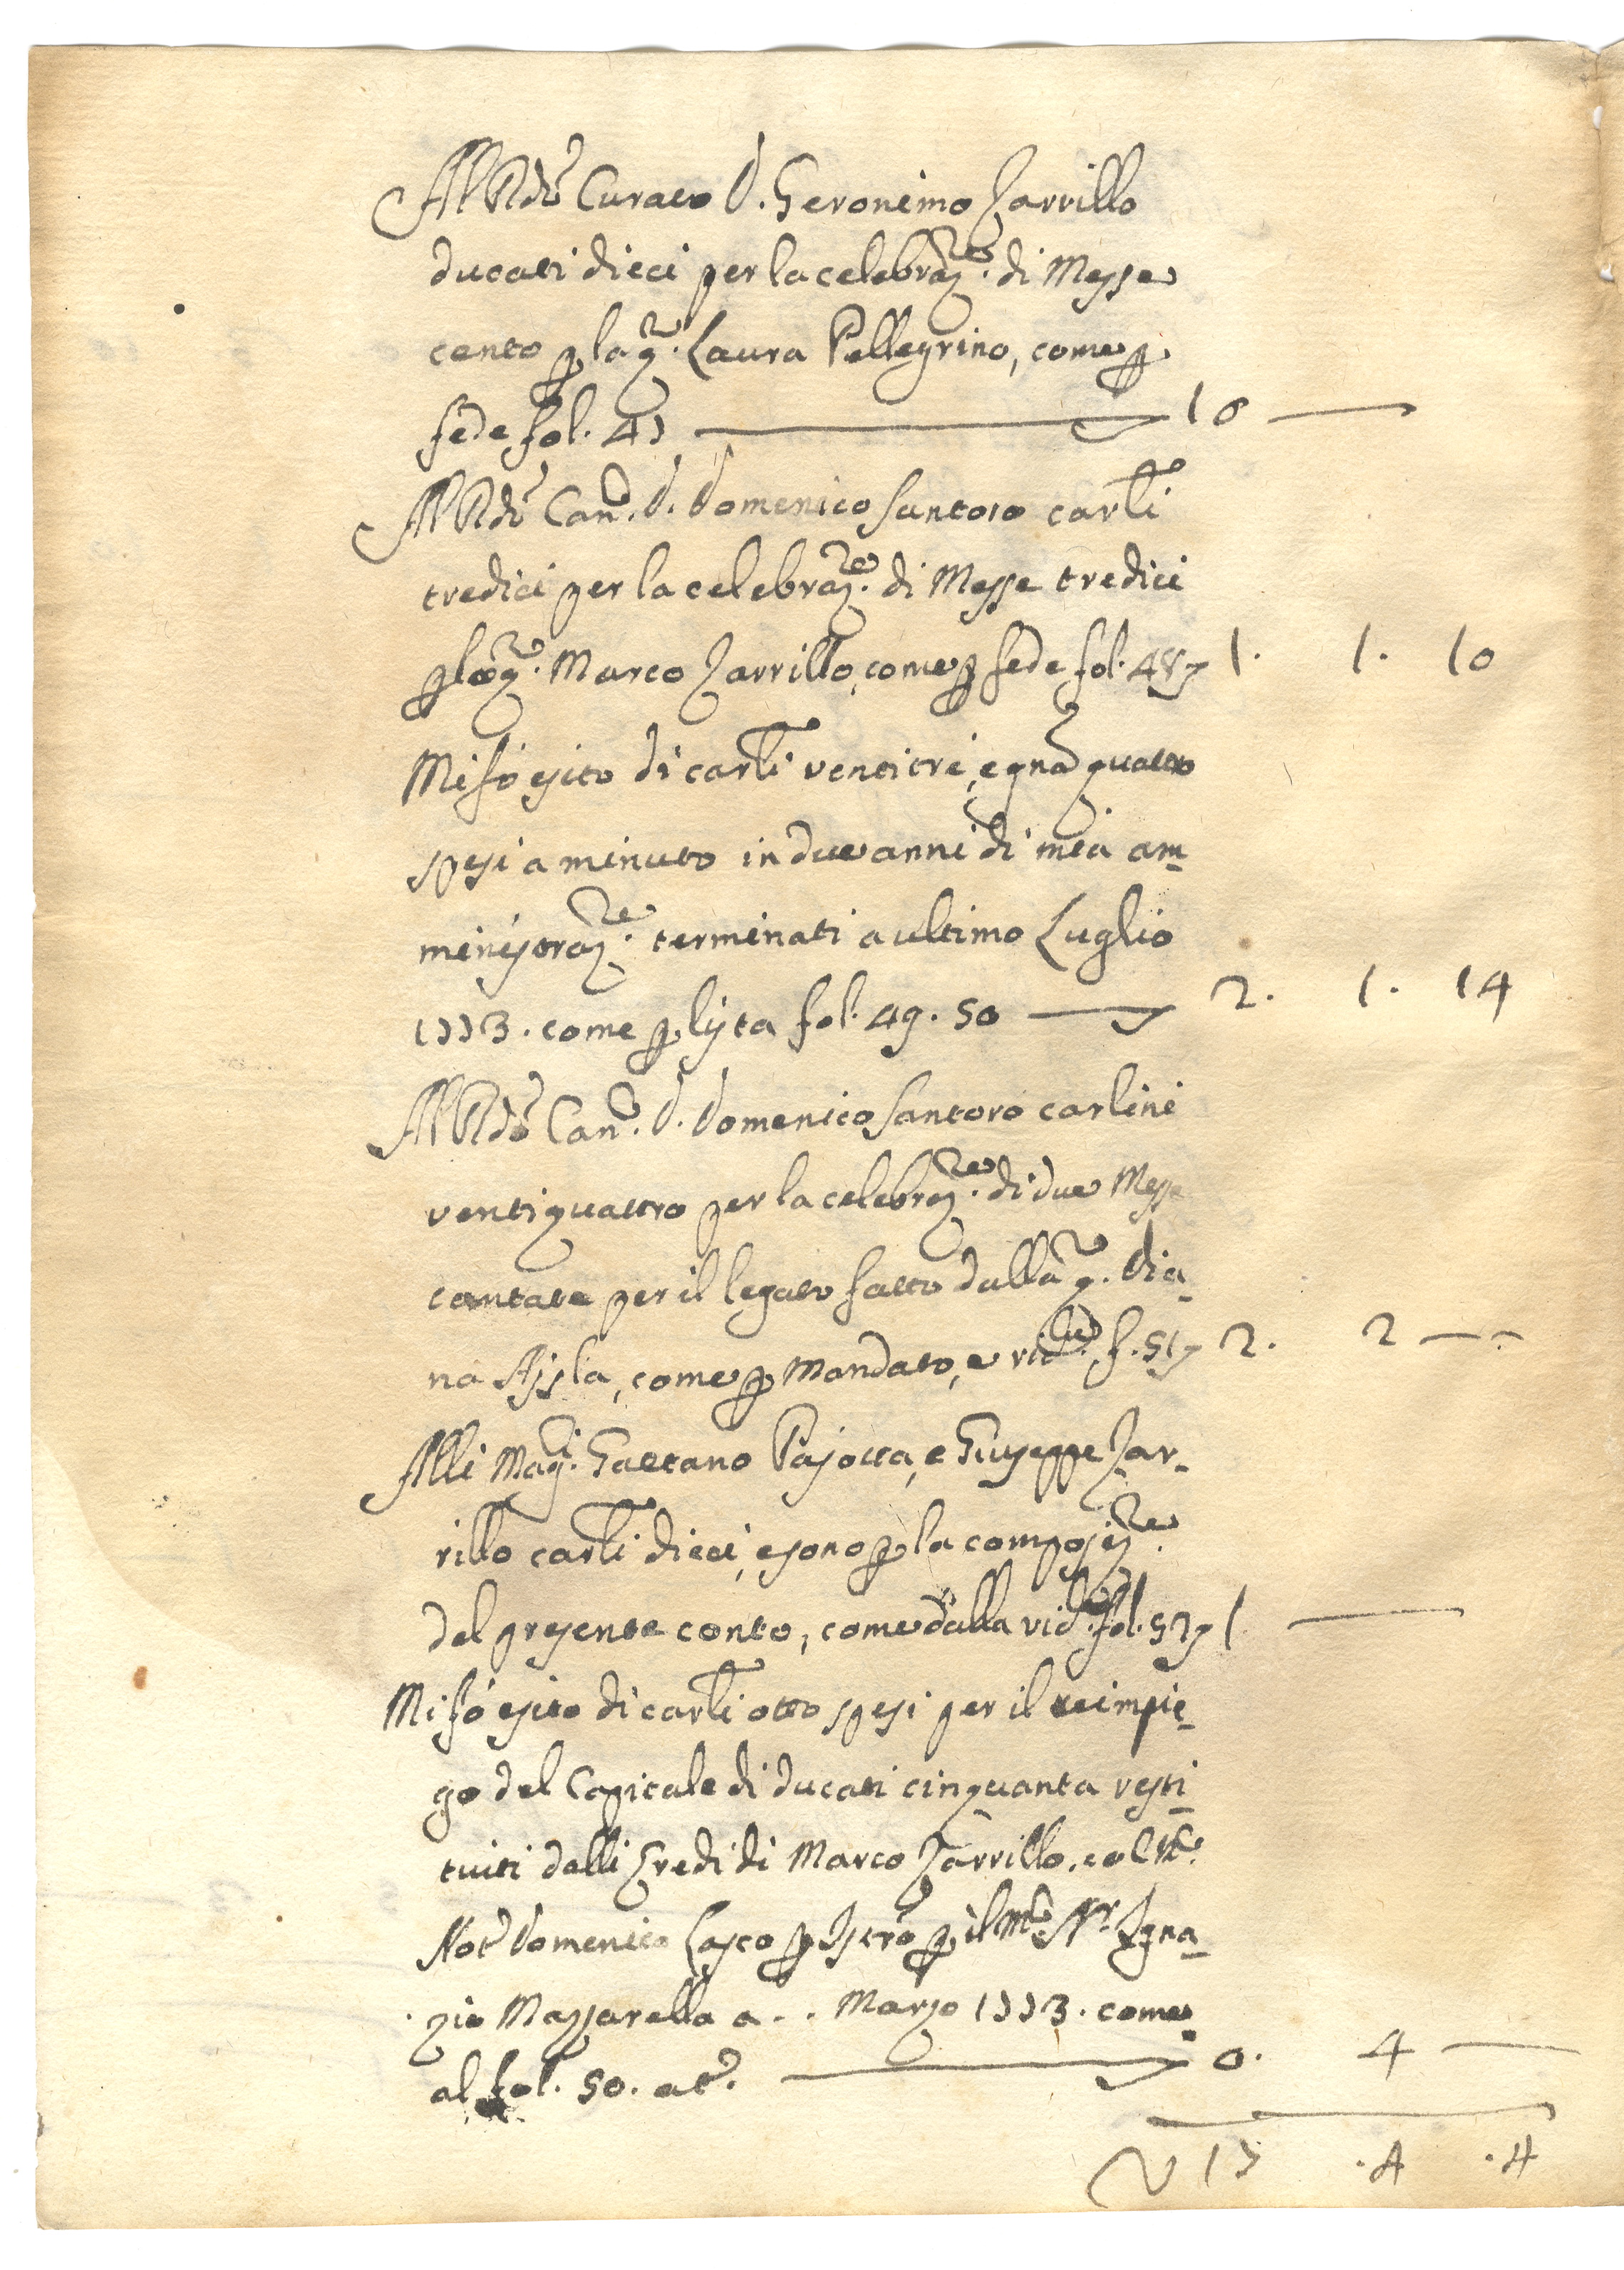 Al Rdo Curato D. Geronimo Zarrillo
ducati dieci per la celebraze. di Messe
cento p la q. Laura Pellegrino, come p
fede fol. 47 — 10 —
Al Rdo Can.o D. Domenico Santoro carli
tredici per la celebraze. di Messe tredici
p lo q. Marco Zarrillo, come p fede fol. 48 1. 1. 10
Mi fò esito di carli ventitré, e gna quattro
spesi a minuto in due anni di mia am-
ministraze. terminati a ultimo Luglio
1773. come p lista fol. 49. 50 — 2. 1. 14
Al Rdo Can.o D. Domenico Santoro carlini
ventiquattro per la celebraze. di due Messe
cantate per il legato fatto dalla q. Dia-
na Aysla, come p Mandato, e f. 51 2. 2 —
Alli Magci. Gaetano Pajotta, e Giuseppe Zar-
rillo carli dieci, e sono p la composize.
del presente conto, come dalla fol. 52 1 —
Mi fò esito di carli otto spesi per il reimpie-
go del Capitale di ducati cinquanta resti-
tuiti dalli Eredi di Marco Zarrillo.
Not.r Domenico Lasco p Istro p il Mco Nr Igna-
zio Mazzarella a . . Marzo 1773. come
al fol. 50. at.o — 0. 4 —
17 . 4 . 4